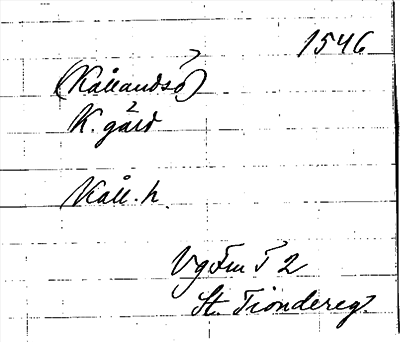 1546
(Kållandsö)
K. gård
Kåll. h.
Vg Fm T 2
St. Tiondereg.